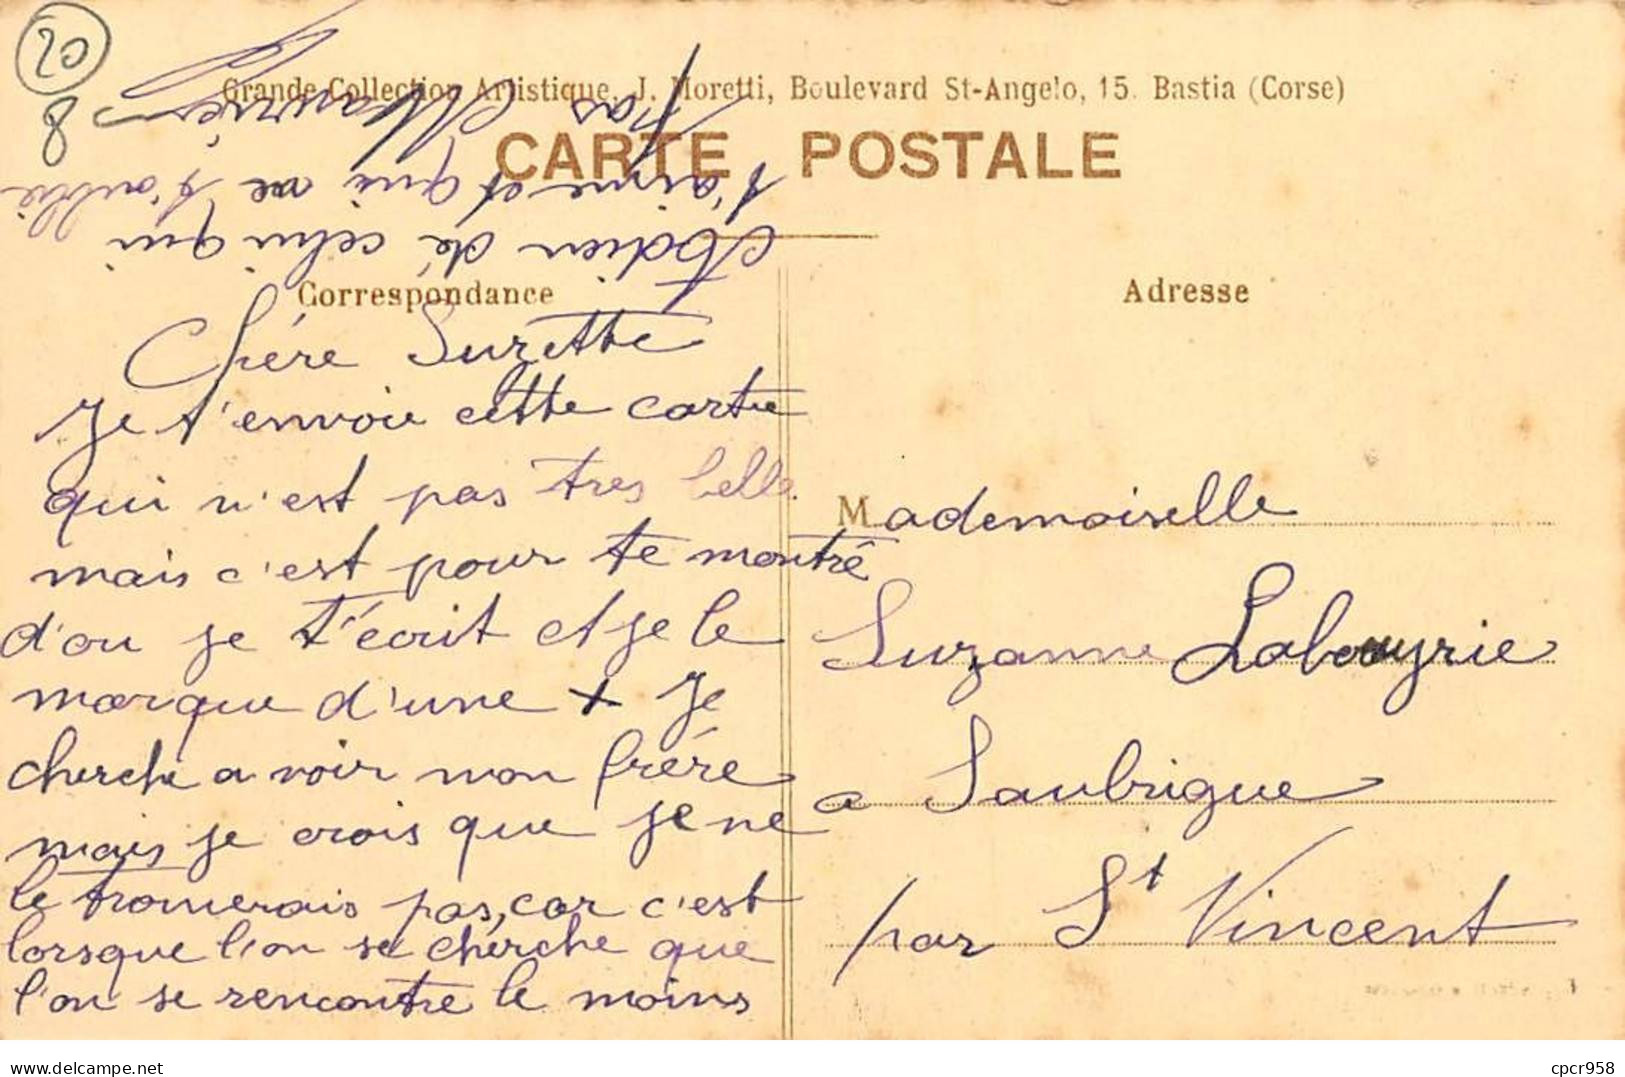 20
8
Grande Collection Artistique. J. Moretti, Boulevard St-Angelo, 15. Bastia (Corse)
CARTE POSTALE
Correspondance
Adresse
Chére Suzette
Je t'envoie cette carte
qui n'est pas tres belle.
mais c'est pour te montré
d'ou je t'écrit et je le
marque d'une + Je
cherche a voir mon frére
mais je crois que je ne
le trouverais pas, car c'est
lorsque l'on se cherche que
l'on se rencontre le moins
Adieu dé celui qui
t'aime et qui ne t'oublie
pas Maurice
Mademoiselle
Suzanne Labouyrie
a Saubrigue
par St Vincent
https://www.delcampe.net
cpcr958